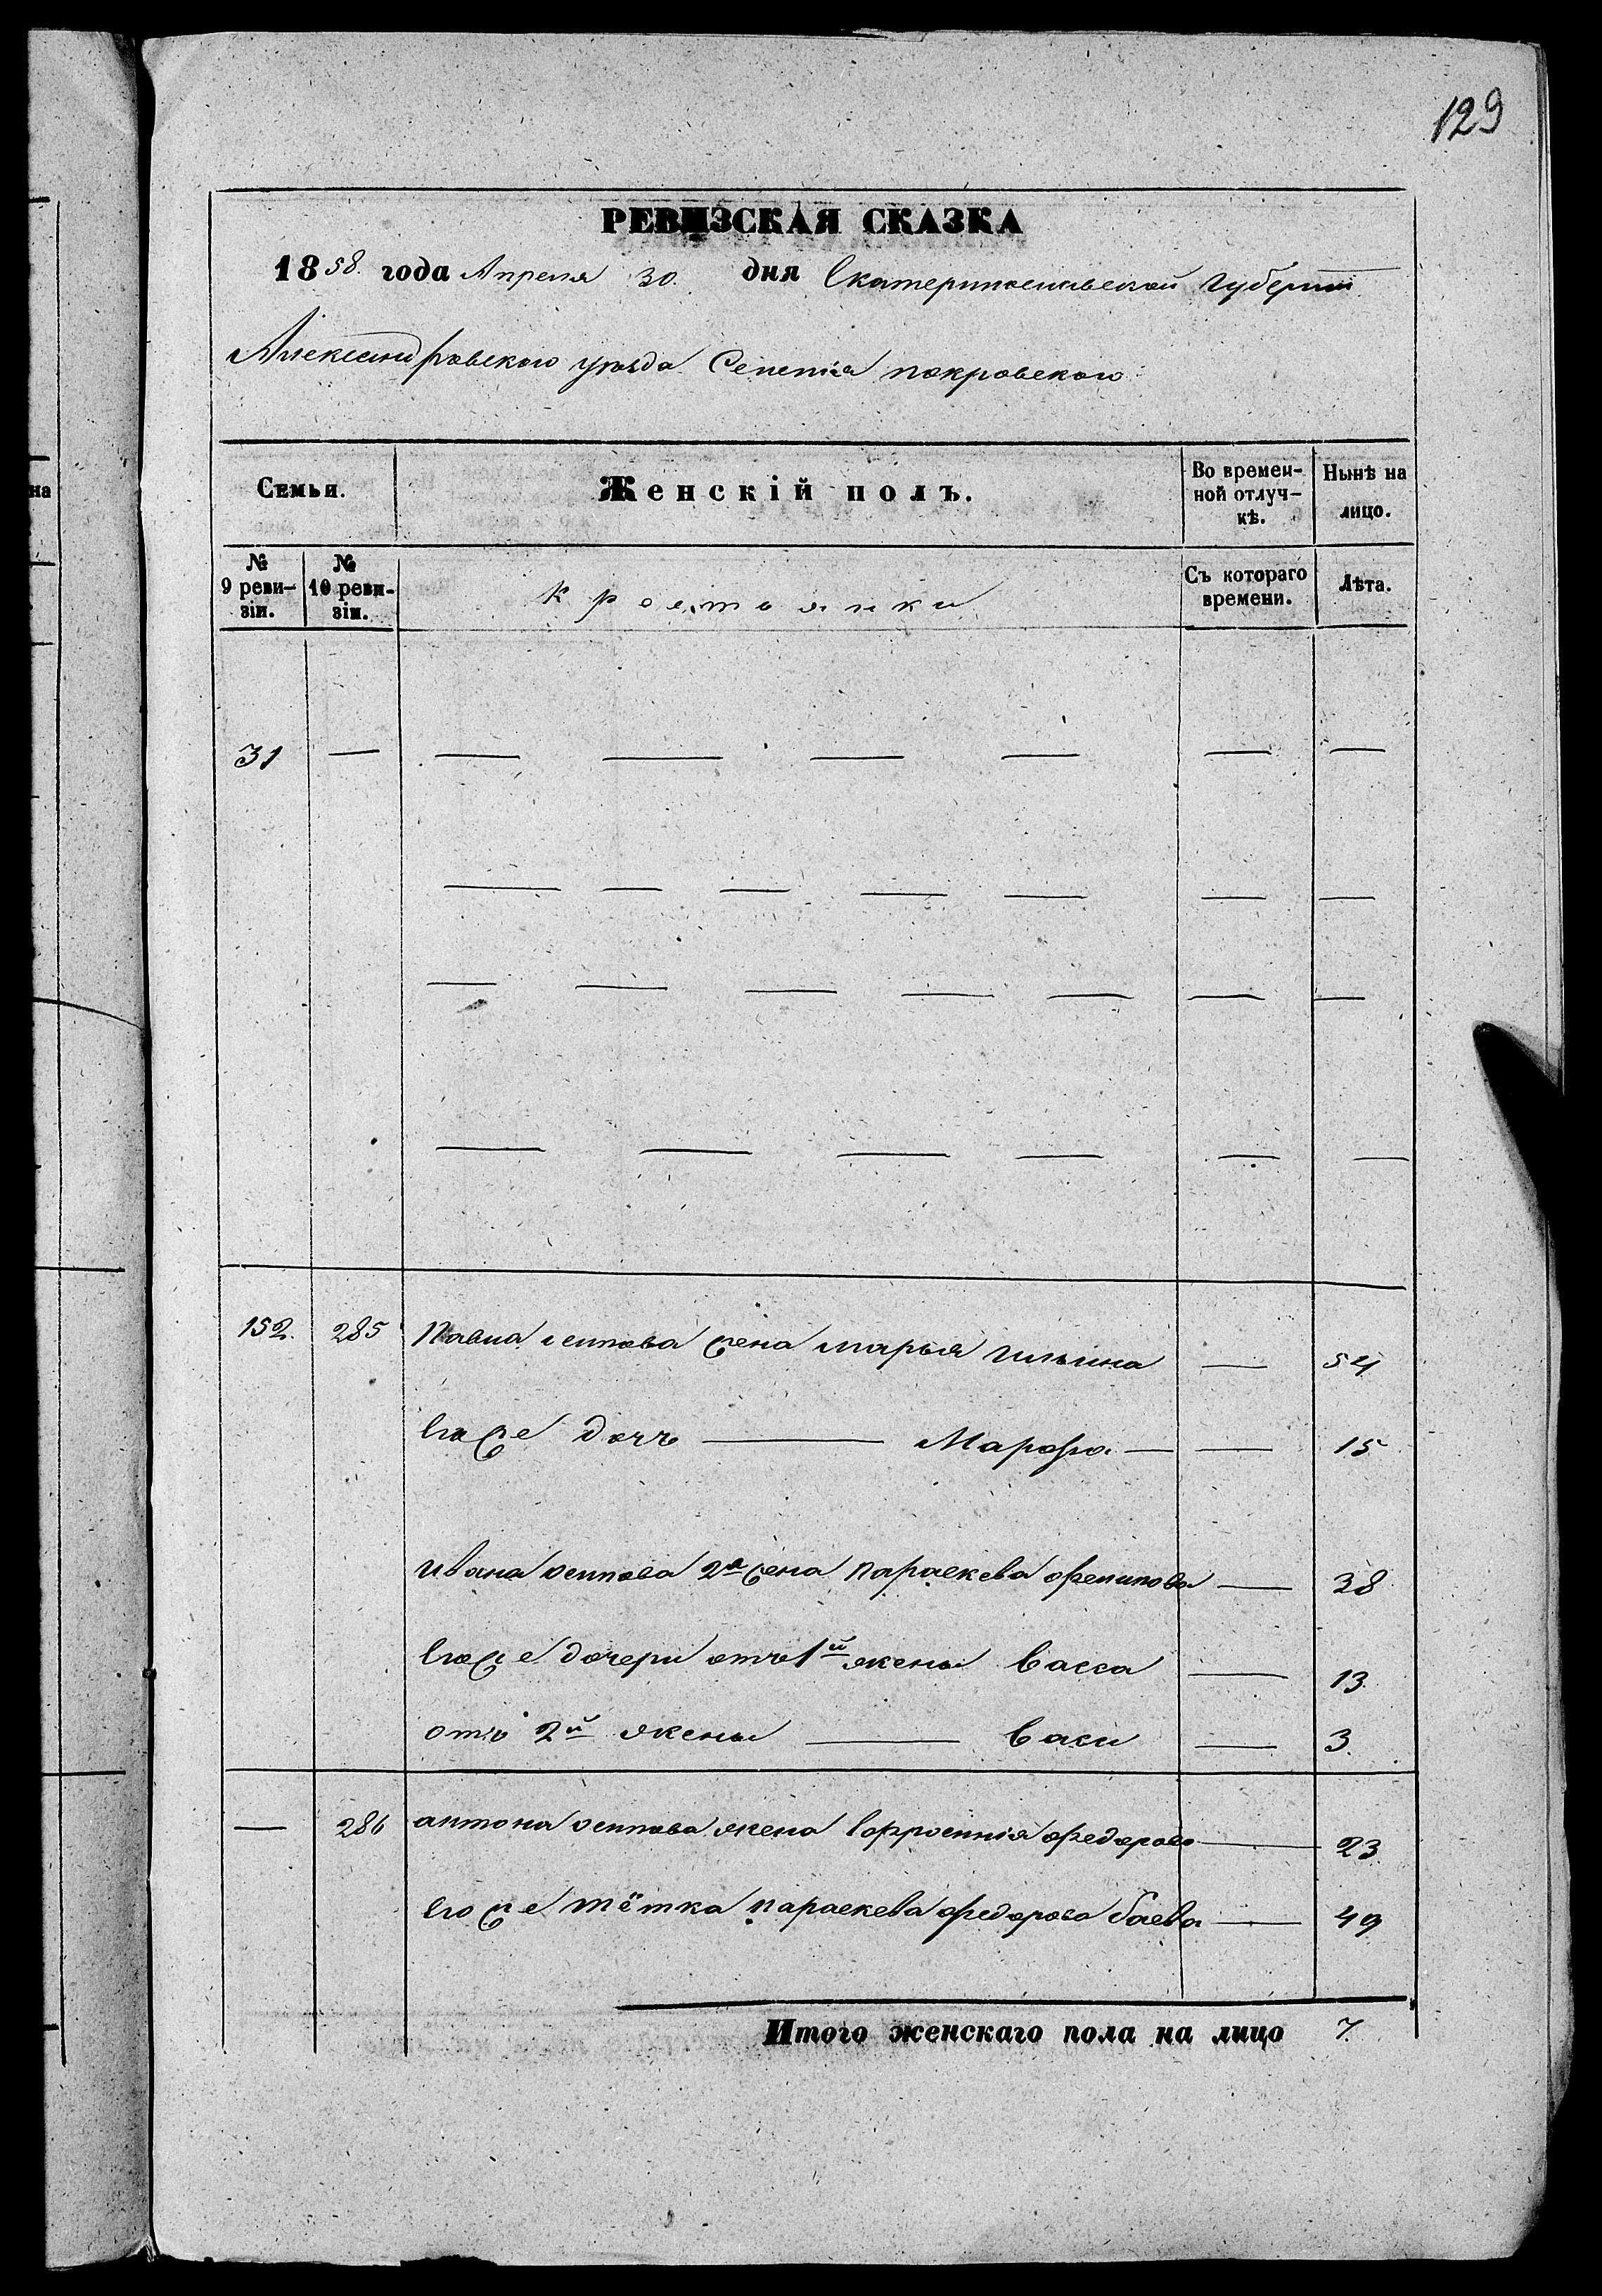 129
РЕВИЗСКАЯ СКАЗКА
1858. года Апреля 30. дня Екатеринославской Губерніи
Александровского уѣзда Селенія покровского
на
Семьи.
Женскій полъ.
Во времен-
ной отлуч-
кѣ.
Нынѣ на
лицо.
№
9 реви-
зіи.
№
10 реви-
зіи.
Крестьянки
Съ котораго
времени.
Лѣта.
31 — — — — — — —
— — — — — — —
— — — — — — —
— — — — — —
152. 285 Павла осипова жена марья ильина — 54
Его же дочь — Марфа — — 15
ивана осипова 2я жена параскева филипова — 38
Его же дочери отъ 1й жены васса — 13
отъ 2й жены — — 3.
— 286 антона осипова жена Ефросинія федорова — 23
Его же тётка параскева федорова баева — 49
Итого женскаго пола на лицо 7.